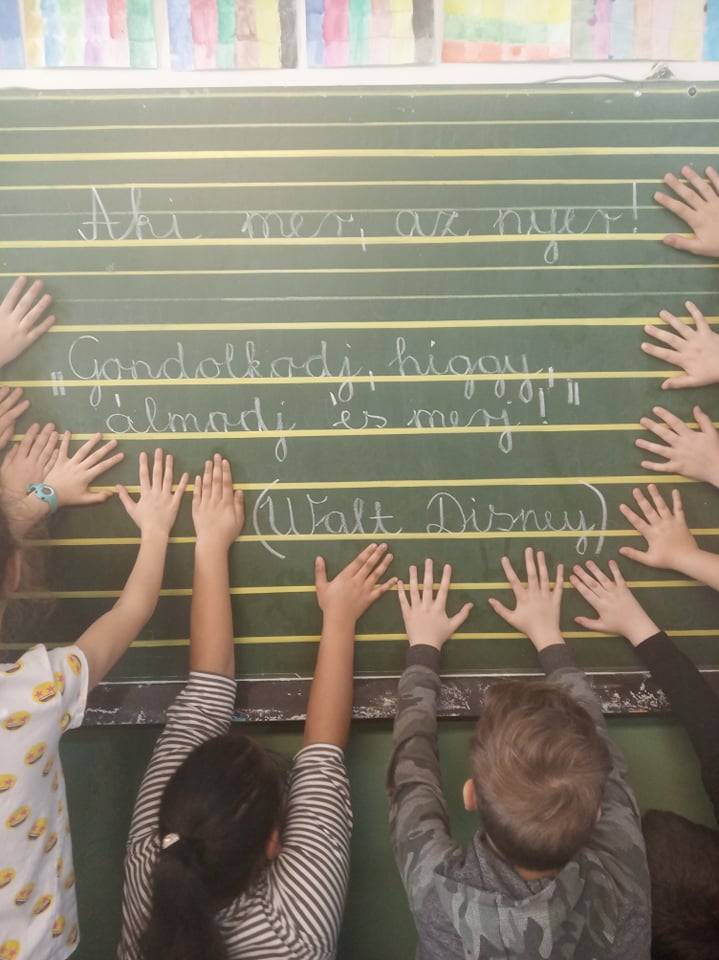 Aki mer, az nyer!
„Gondolkodj, higgy,
álmodj és merj!"
(Walt Disney)